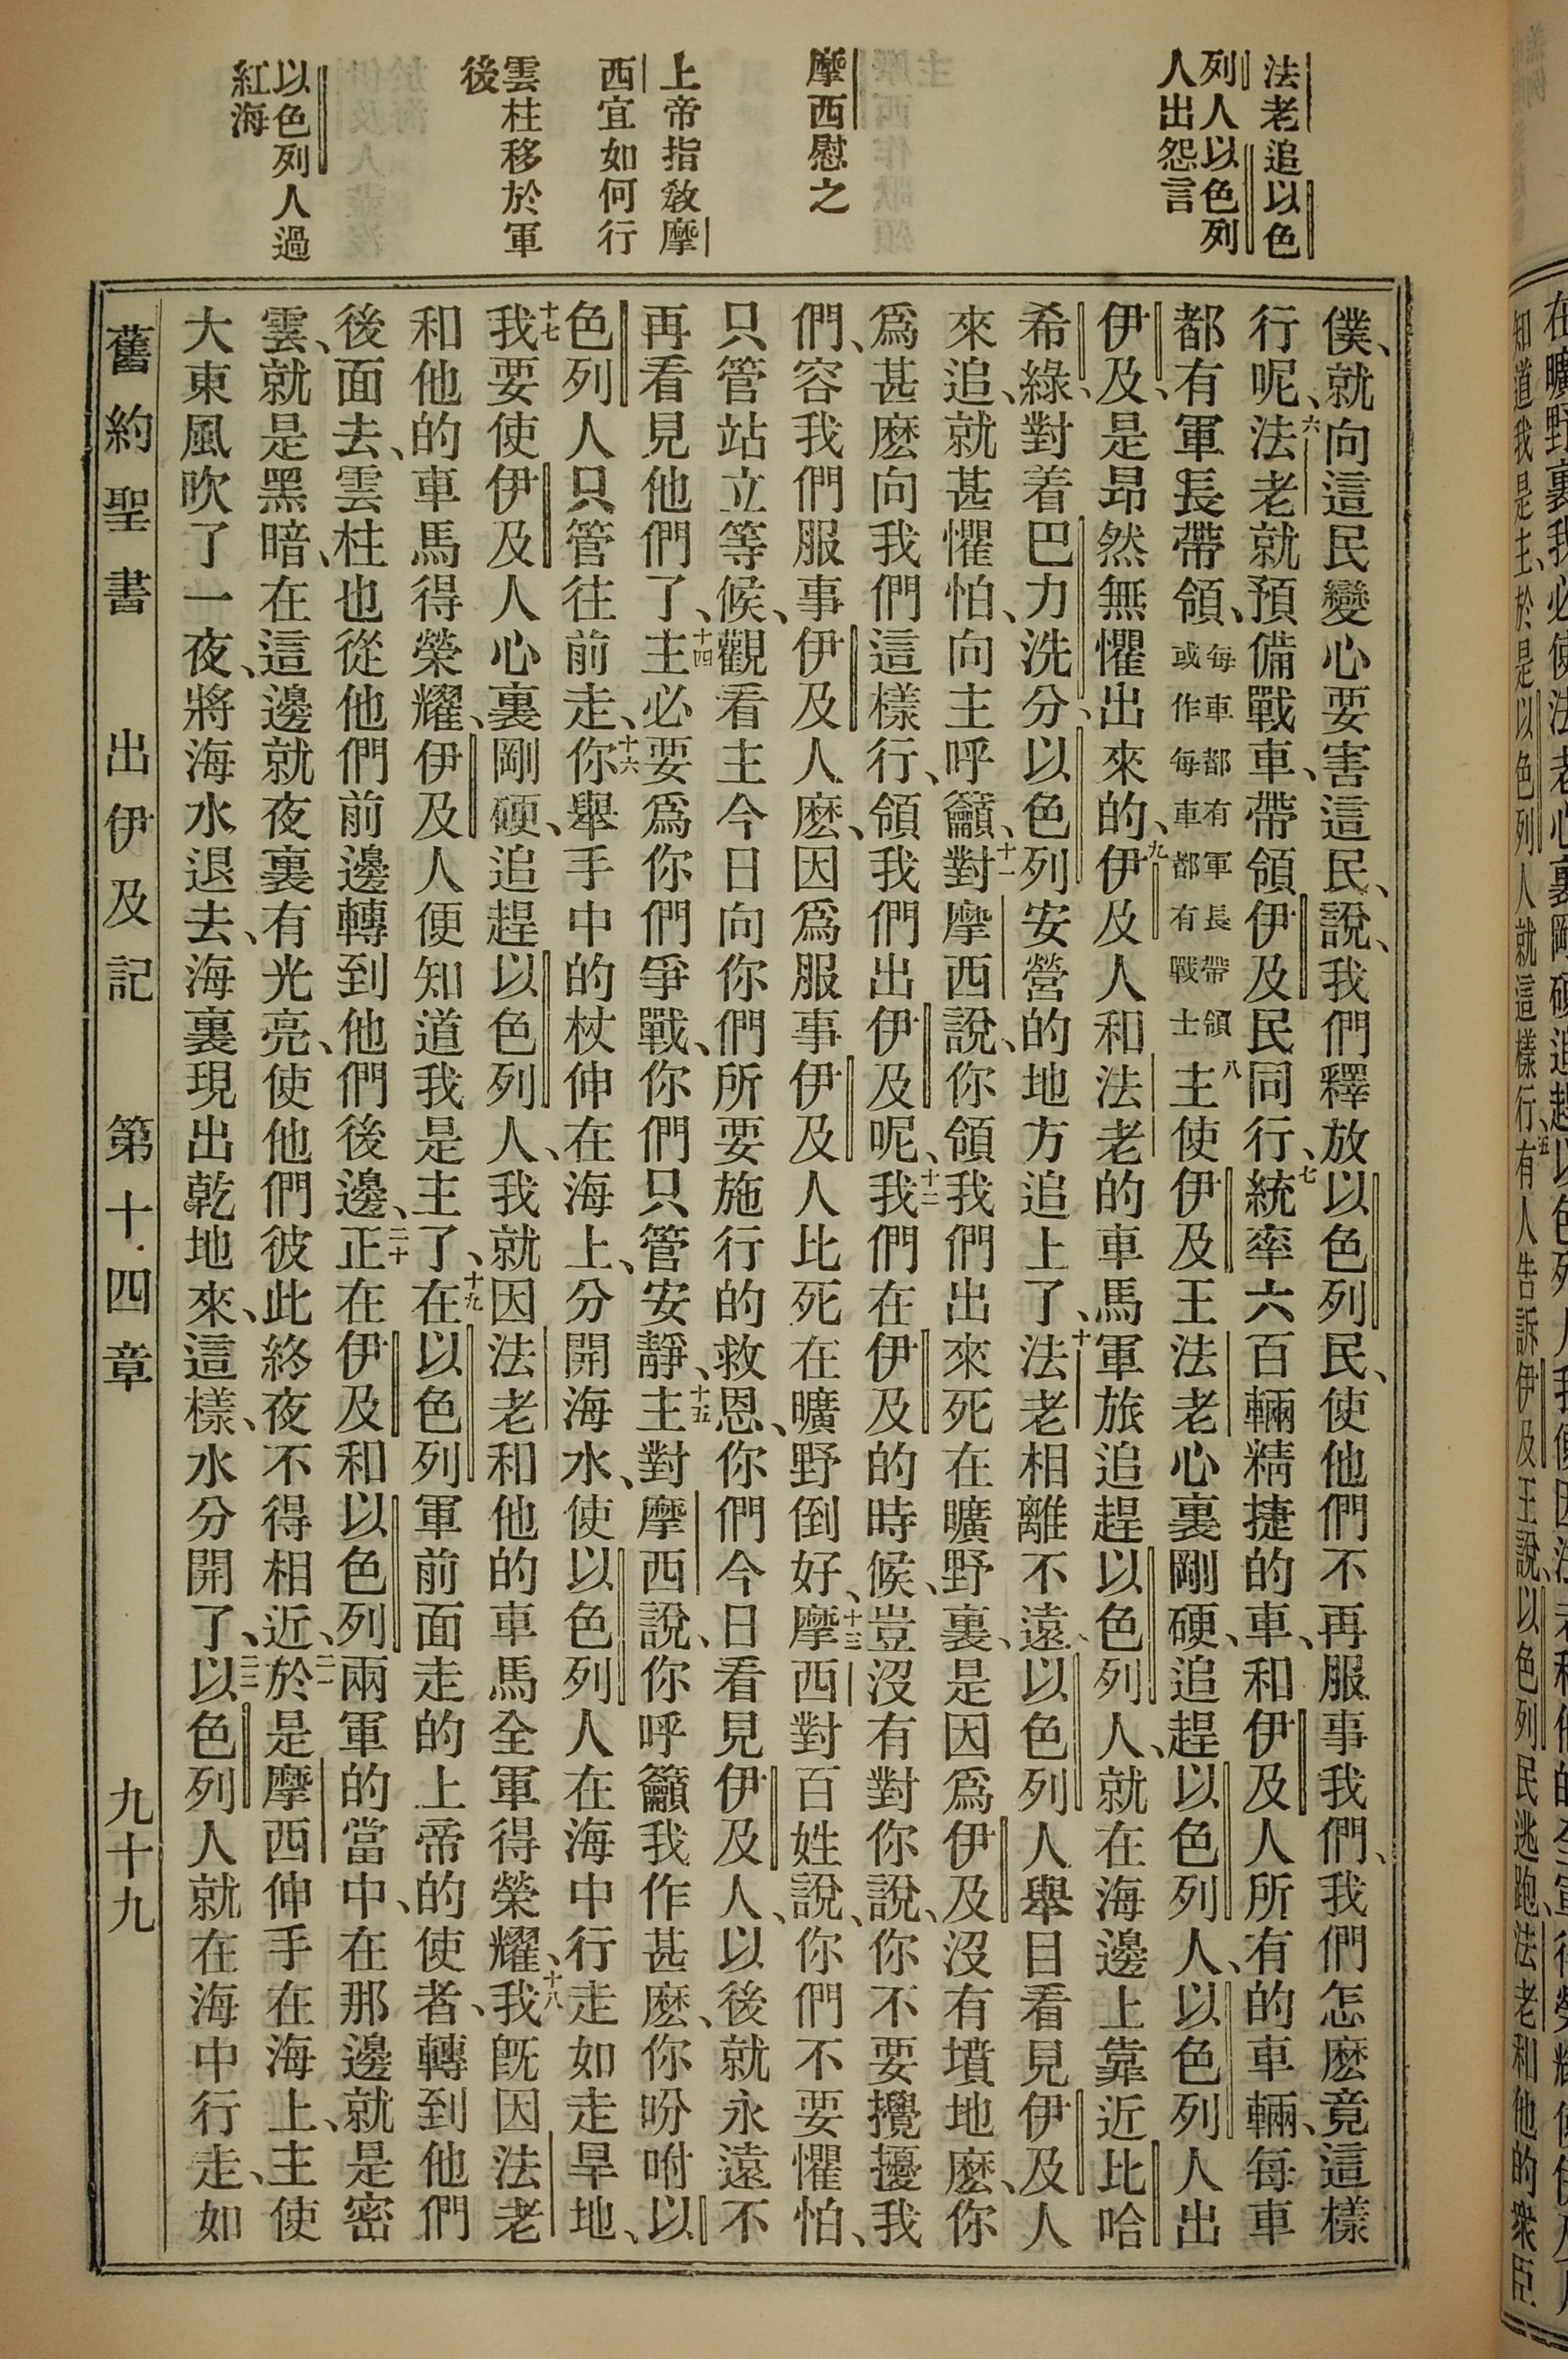 法老追以色
列人以色列
人出怨言
摩西慰之
上帝指敎摩
西宜如何行
雲柱移於軍
後
以色列人過
紅海
僕、就向這民變心要害這民、說、我們釋放以色列民、使他們不再服事我們、我們怎麽竟這樣
行呢、六法老就預備戰車、帶領伊及民同行、七統率六百輛精捷的車、和伊及人所有的車輛、每車
都有軍長帶領、每車都有軍長帶領或作每車都有戰士八主使伊及王法老心裏剛硬、追趕以色列人、以色列人出
伊及、是昂然無懼出來的、九伊及人和法老的車馬軍旅追趕以色列人、就在海邊上靠近比哈
希綠、對着巴力洗分、以色列安營的地方追上了、十法老相離不遠、以色列人舉目看見伊及人
來追、就甚懼怕、向主呼籲、十一對摩西說、你領我們出來死在曠野裏、是因爲伊及沒有墳地麽、你
爲甚麽向我們這樣行、領我們出伊及呢、十二我們在伊及的時候、豈沒有對你說、你不要攪擾我
們、容我們服事伊及人麽、因爲服事伊及人比死在曠野倒好、十三摩西對百姓說、你們不要懼怕、
只管站立等候、觀看主今日向你們所要施行的救恩、你們今日看見伊及人、以後就永遠不
再看見他們了、十四主必要爲你們爭戰、你們只管安靜、十五主對摩西說、你呼籲我作甚麽、你吩咐以
色列人只管往前走、十六你舉手中的杖伸在海上、分開海水、使以色列人在海中行走如走旱地、
十七我要使伊及人心裏剛硬、追趕以色列人、我就因法老和他的車馬全軍得榮耀、十八我旣因法老
和他的車馬得榮耀、伊及人便知道我是主了、十九在以色列軍前面走的上帝的使者、轉到他們
後面去、雲柱也從他們前邊轉到他們後邊、二十正在伊及和以色列兩軍的當中、在那邊就是密
雲、就是黑暗、在這邊就夜裏有光亮、使他們彼此終夜不得相近、二一於是摩西伸手在海上、主使
大東風吹了一夜、將海水退去、海裏現出乾地來、這樣、水分開了、二二以色列人就在海中行走、如
舊約聖書 出伊及記 第十四章 九十九